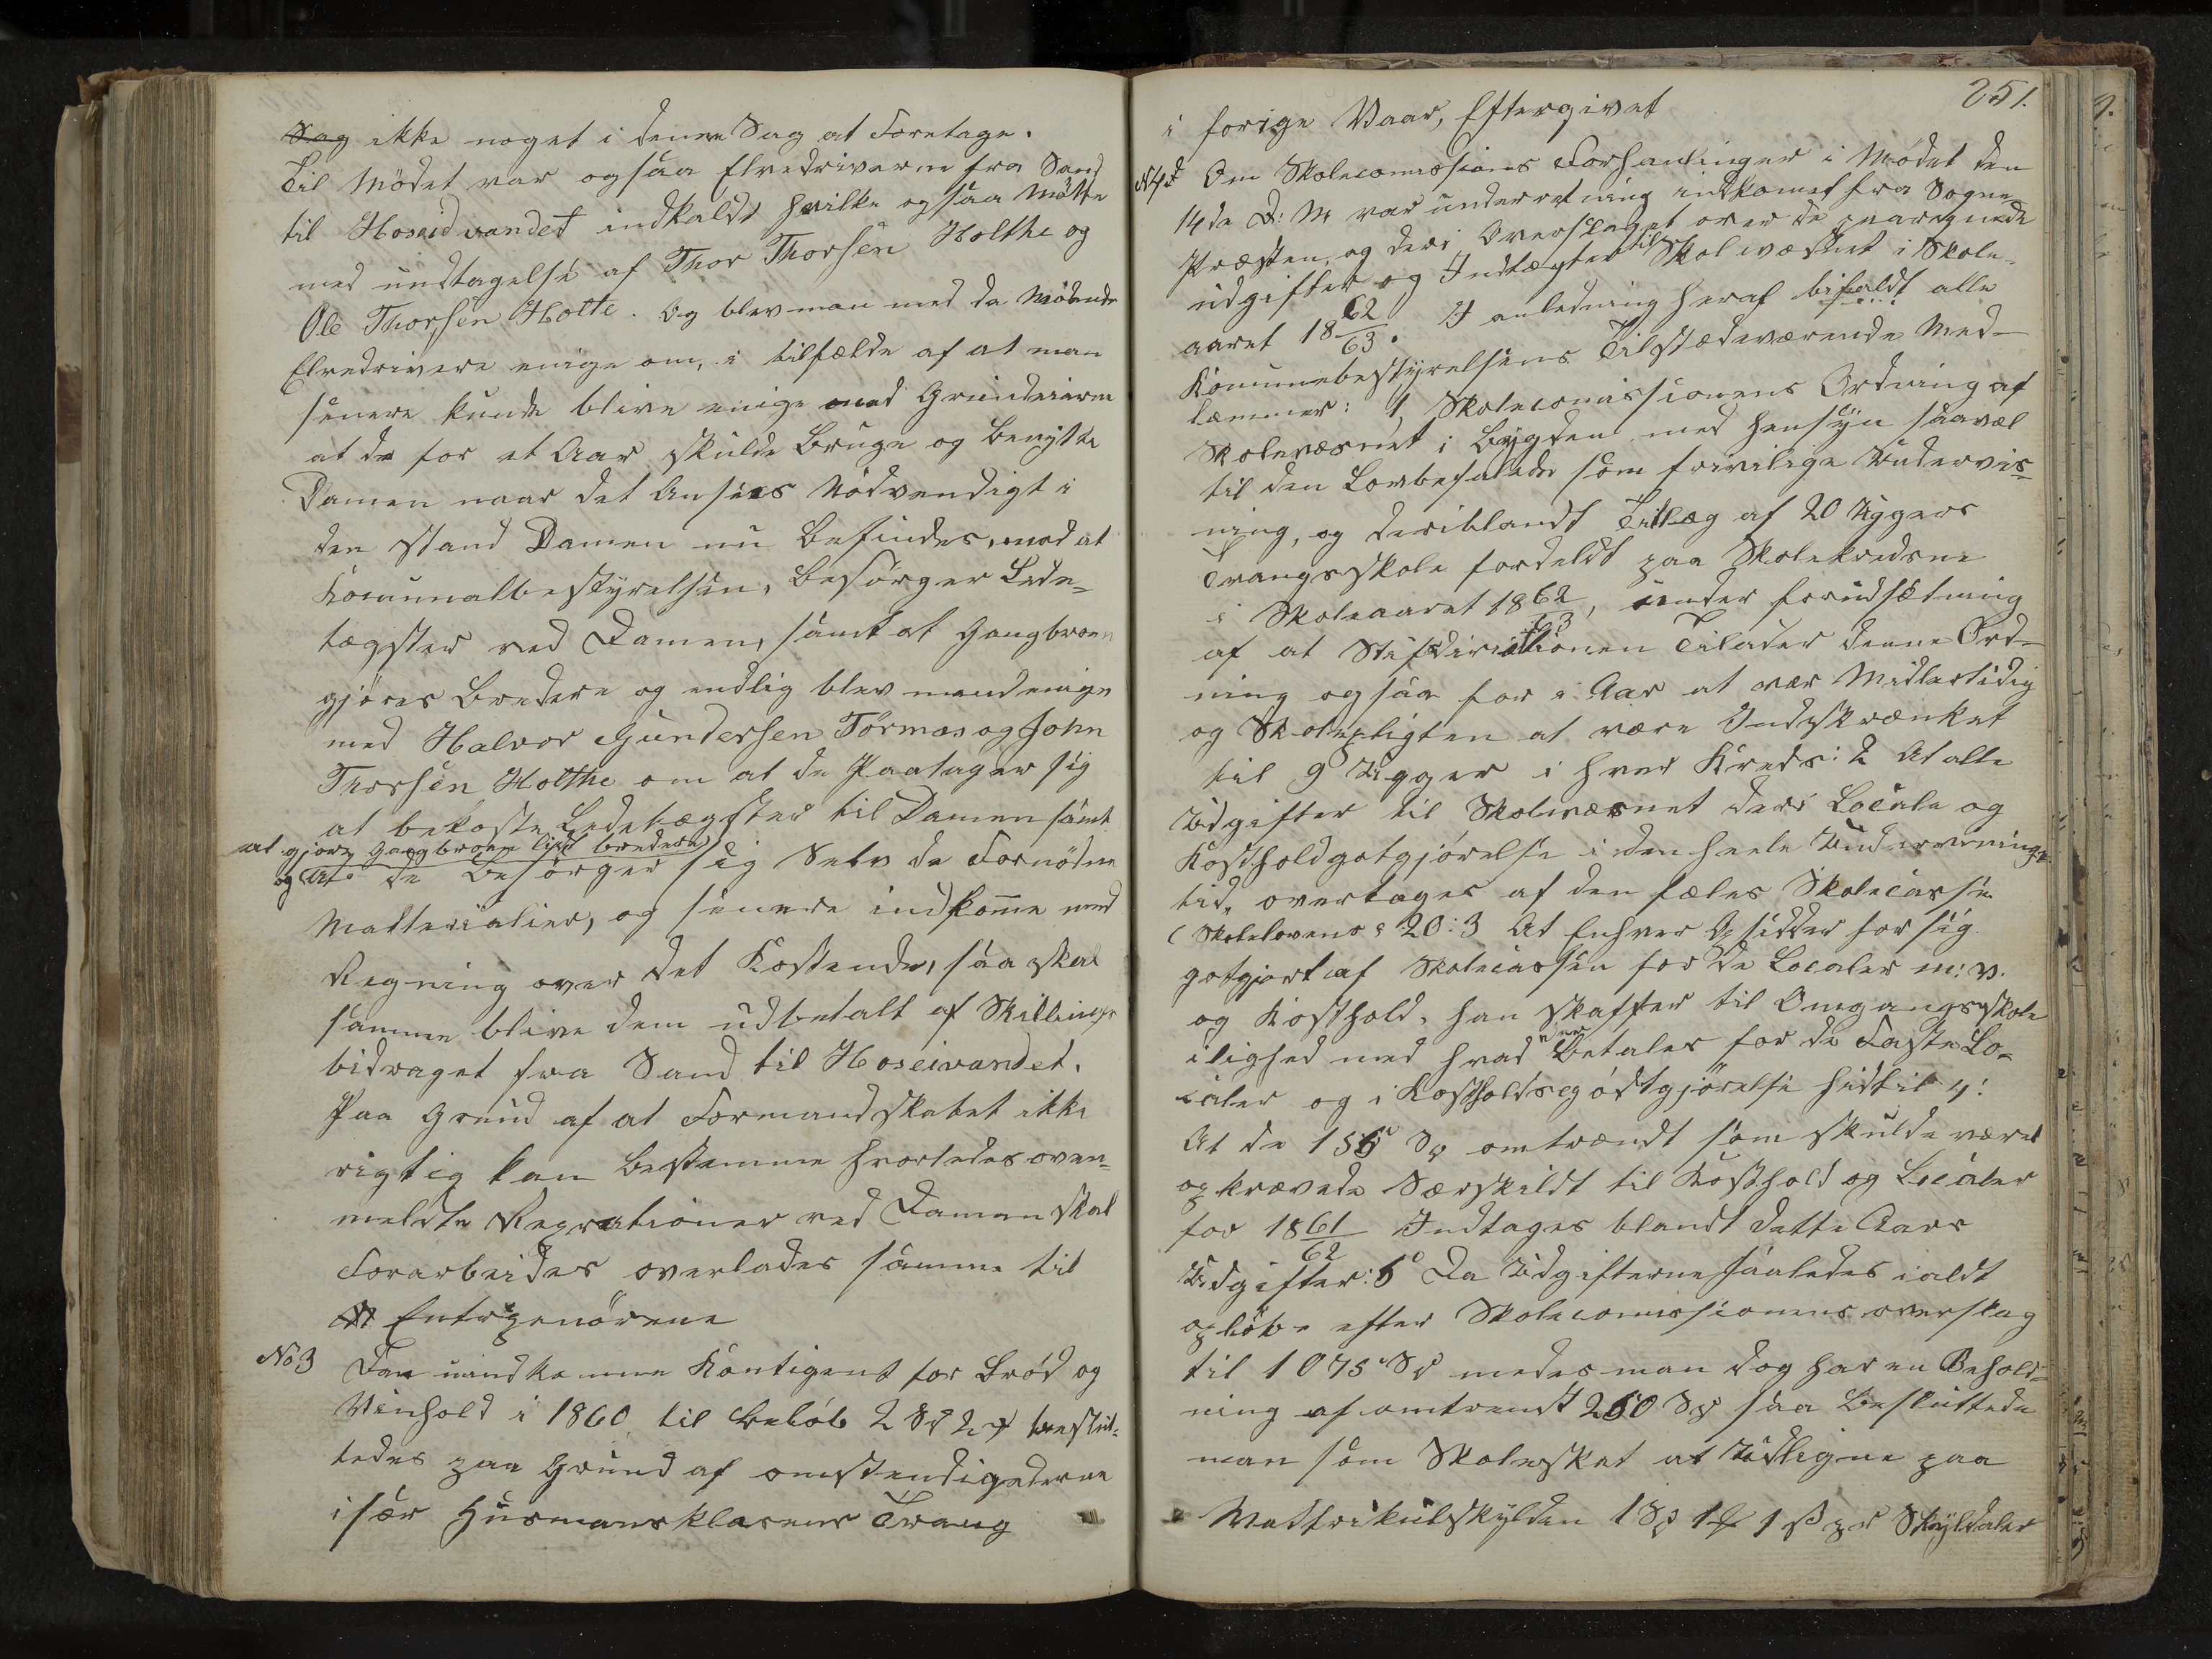 Sag ikke noget i denne Sag at Foretage.
Til Mödet var ogsaa Elvedriverne fra Sand
til Hoseidvandet indkaldt hvilke ogsaa Mötte
med undtagelse af Thor Thorsen Holthe og
Ole Thorsen Holte. Og blev man med de Mödende
Elvedrivere enige om, i tilfælde af at man
senere kunde blive enige med Grundeierne
at de for et Aar skulde Bruge og Benytte
Damen naar det Ansees Nödvendigt i
den stand Damen nu Befindes, mod at
Komunalbestyrelsen, Besörger Lede-
tægster ved Damen, samt at Gangbroen
gjöres Bredere og endlig blev mand enige
med Halvor Gundersen Törmas og John
Thorsen Holthe om at de Paatager sig
at bekoste Ledetægster til Damen samt
at gjöre Gangbroen lidt bredere
og At de Besörger sig Selv de Fornödne
Matterialier, og senere indkomme med
Regning over det Kostende, saa skal
samme blive dem udbetalt af Skillings
bidraget fra Sand til Hoseivandet.
Paa Grund af at Formandskabet ikke
rigtig kan Bestemme hvorledes oven-
meldte Reprationer ved Damen skal
Forarbeides overlades samme til
Entrepenörene
No 3 Den uindkomne Kontigent for Bröd og
Vinhold i 1860 til Belöb 2 Sp 2 beslut-
tedes paa Grund af omstendigederne
især Husmansklasens Trang
251.
i forige Vaar, Eftergivet
N4d Om Skolecomisions Forhanlinger i Mödet den
14de D: M var underretning indkomet fra Sogne
Præsten, og deri Overslaget over de paaregnede
udgifter og Indtægter til Skolevæsnet i Skole-
aaret 18 62/63. I anledning heraf bifaldt alle
Komunebestyrelsens Tilstædeværende Med-
lemmer: 1, Skolecomissionens Ordning af
Skolevæsnet i Bygden med hensyn saavel
til den Lovbefalede som frivilige Undervis-
ning, og deriblandt Tillæg af 20 Uggers
Tvangsskole fordeldt paa Skolekredsene
i Skoleaaret 18 62/63, under forudsætning
af at Stifsdirictionen Tilader denne Ord-
ning ogsaa for i Aar at vær Midlertidig
og Skolepligten at være Indskrænket
til 9 Ugger i hver Kreds: 2 At alle
Udgifter til Skolevæsnet deri Locale og
Kostholdgotgjörelse i den heele Undervisnings
tid, overtages af den fæles Skolecasse
(Skolelovens § 20: 3 At Enhver Opsidder for sig
gotgjort af Skolecassen for de Localer m: v.
og Kosthold, han skaffer til Omgangsskole
ilighed med hvad der Betales for de Faste Lo-
caler og i Kostholdsgodtgjörelse hidtil 4:
At de 156 Sp omtrændt som skulde været
opkrævede Særskildt til Kosthold og Localer
for 18 61/62 Indtages blandt dette Aars
Udgifter: 5° Da Udgifterne saaledes ialdt
oplöbe efter Skolecomissionens overslag
til 1075 Sp medes man dog har en Behold-
ning af omtrendt 260 Sp saa Besluttede
man som Skoleskat at Udligne paa
Mattrikulskylden 1 Sp 1 1 ß pr Skyldaler